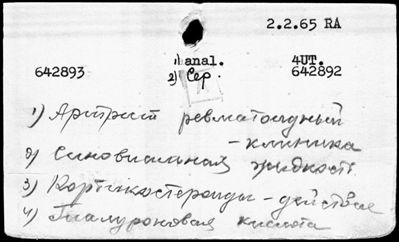 2.2.65 RA
1) anal. 4UT.
642893 2) Сер. 642892
1) Артрит ревматоидный
- клиника
2) Синовиальная жидкость
3) Кортикостероиды - действие
4) Гиалуроновая кислота